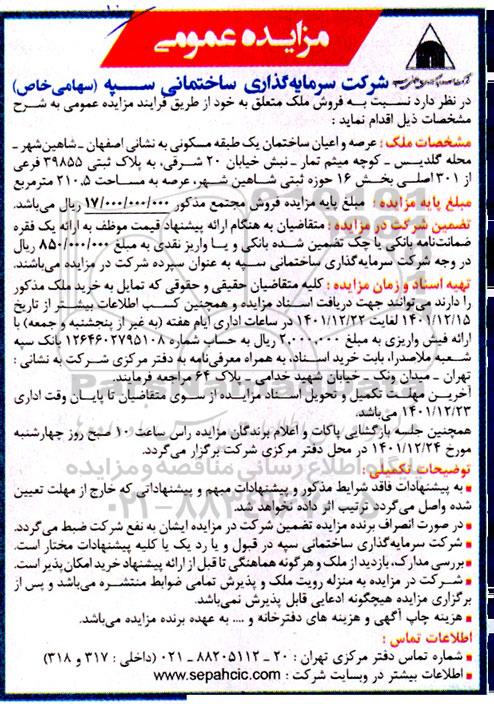 مزایده عمومی
شرکت سرمایه‌گذاری ساختمانی سپه (سهامی خاص)
در نظر دارد نسبت به فروش ملک متعلق به خود از طریق فرایند مزایده عمومی به شرح
مشخصات ذیل اقدام نماید :
مشخصات ملک : عرصه و اعیان ساختمان یک طبقه مسکونی به نشانی اصفهان ـ شاهین‌شهر ـ
محله گلدیس ـ کوچه میثم تمار ـ نبش خیابان ۲۰ شرقی، به پلاک ثبتی ۳۹۸۵۵ فرعی
از ۳۰۱ اصلی بخش ۱۶ حوزه ثبتی شاهین شهر، عرصه به مساحت ۲۱۰.۵ مترمربع
مبلغ پایه مزایده : مبلغ پایه مزایده فروش مجتمع مذکور ۱۷/۰۰۰/۰۰۰/۰۰۰ ریال می‌باشد.
تضمین شرکت در مزایده : متقاضیان به هنگام ارائه پیشنهاد قیمت موظف به ارائه یک فقره
ضمانت‌نامه بانکی یا چک تضمین شده بانکی و یا واریز نقدی به مبلغ ۸۵۰/۰۰۰/۰۰۰ ریال
در وجه شرکت سرمایه‌گذاری ساختمانی سپه به عنوان سپرده شرکت در مزایده می‌باشند.
تهیه اسناد و زمان مزایده : کلیه متقاضیان حقیقی و حقوقی که تمایل به خرید ملک مذکور
را دارند می‌توانند جهت دریافت اسناد مزایده و همچنین کسب اطلاعات بیشتر از تاریخ
۱۴۰۱/۱۲/۱۵ لغایت ۱۴۰۱/۱۲/۲۲ در ساعات اداری ایام هفته (به غیر از پنجشنبه و جمعه) با
ارائه فیش واریزی به مبلغ ۲.۰۰۰.۰۰۰ ریال به حساب شماره ۱۲۶۴۶۰۲۷۹۵۱۰۸ بانک سپه
شعبه ملاصدرا، بابت خرید اسناد، به همراه معرفی‌نامه به دفتر مرکزی شرکت به نشانی :
تهران ـ میدان ونک ـ خیابان شهید خدامی ـ پلاک ۶۴ مراجعه فرمایند.
آخرین مهلت تکمیل و تحویل اسناد مزایده از سوی متقاضیان تا پایان وقت اداری
۱۴۰۱/۱۲/۲۳ می‌باشد.
همچنین جلسه بازگشایی پاکات و اعلام برندگان مزایده راس ساعت ۱۰ صبح روز چهارشنبه
مورخ ۱۴۰۱/۱۲/۲۴ در محل دفتر مرکزی شرکت برگزار می‌گردد.
توضیحات تکمیلی :
به پیشنهادات فاقد شرایط مذکور و پیشنهادات مبهم و پیشنهاداتی که خارج از مهلت تعیین
شده واصل می‌گردد ترتیب اثر داده نخواهد شد.
در صورت انصراف برنده مزایده تضمین شرکت در مزایده ایشان به نفع شرکت ضبط می‌گردد.
شرکت سرمایه‌گذاری ساختمانی سپه در قبول و یا رد یک یا کلیه پیشنهادات مختار است.
بررسی مدارک، بازدید از ملک و هرگونه هماهنگی تا قبل از ارائه پیشنهاد خرید امکان‌پذیر است.
شرکت در مزایده به منزله رویت ملک و پذیرش تمامی ضوابط منتشره می‌باشد و پس از
برگزاری مزایده هیچگونه ادعایی قابل پذیرش نمی‌باشد.
هزینه چاپ آگهی و هزینه های دفترخانه و .... به عهده برنده مزایده می‌باشد.
اطلاعات تماس :
شماره تماس دفتر مرکزی تهران : ۲۰ ـ ۸۸۲۰۵۱۱۲ ـ ۰۲۱ (داخلی : ۳۱۷ و ۳۱۸)
اطلاعات بیشتر در وبسایت شرکت : www.sepahcic.com